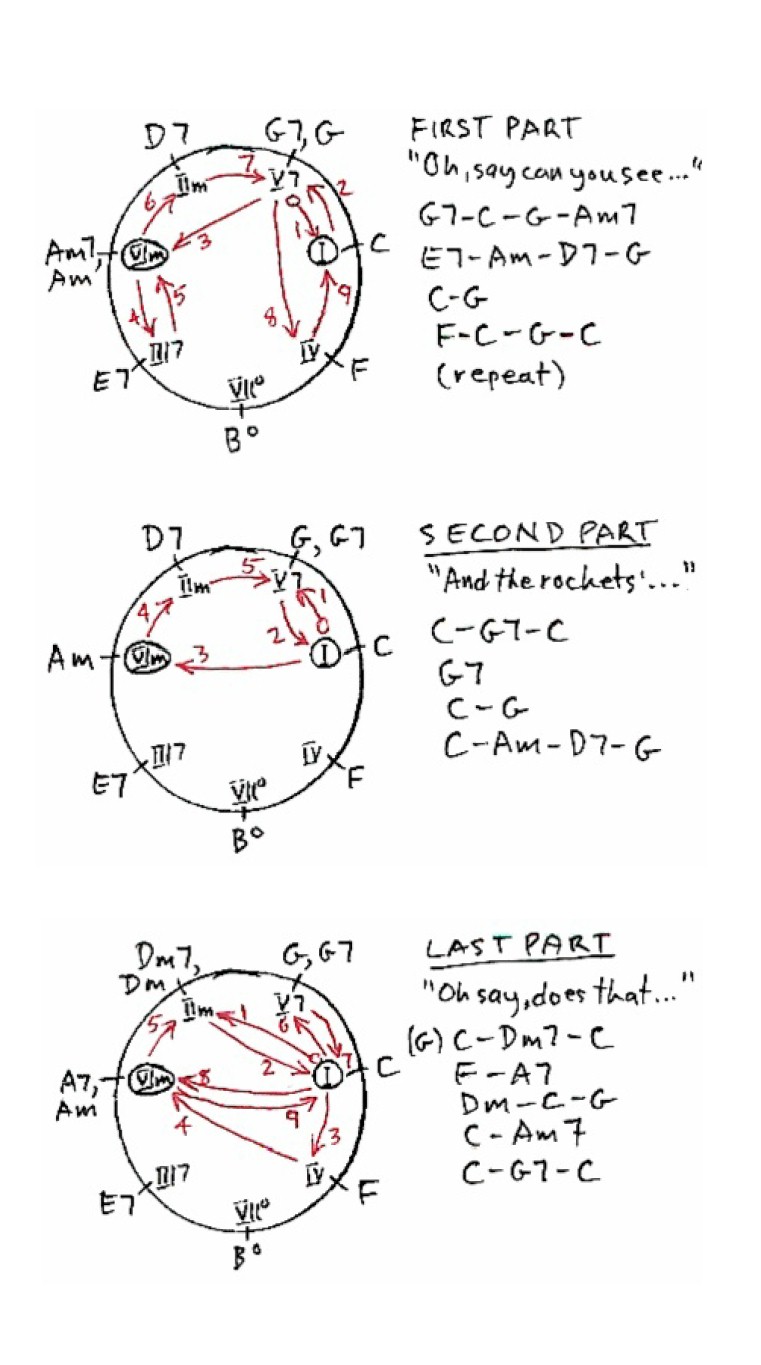 D7 G7, G
FIRST PART
"Oh, say can you see..."
IIm 7 V7
6 0 2
3 1
Am7, Am
VIm I C
G7-C-G-Am7
E7-Am-D7-G
C-G
F-C-G-C
(repeat)
4 5 8 9
E7 III7 IV F
VII°
B°
D7 G, G7
SECOND PART
"And the rockets'..."
IIm 5 V7
4 1
2 0
Am VIm 3 I C
C-G7-C
G7
C-G
C-Am-D7-G
E7 III7 IV F
VII°
B°
Dm7, Dm
G, G7
LAST PART
"Oh say, does that..."
IIm 1 V7
5 6
2 0 7
A7, Am
VIm 8 I C
(G) C-Dm7-C
F-A7
Dm-C-G
C-Am7
C-G7-C
4 9 3
E7 III7 IV F
VII°
B°